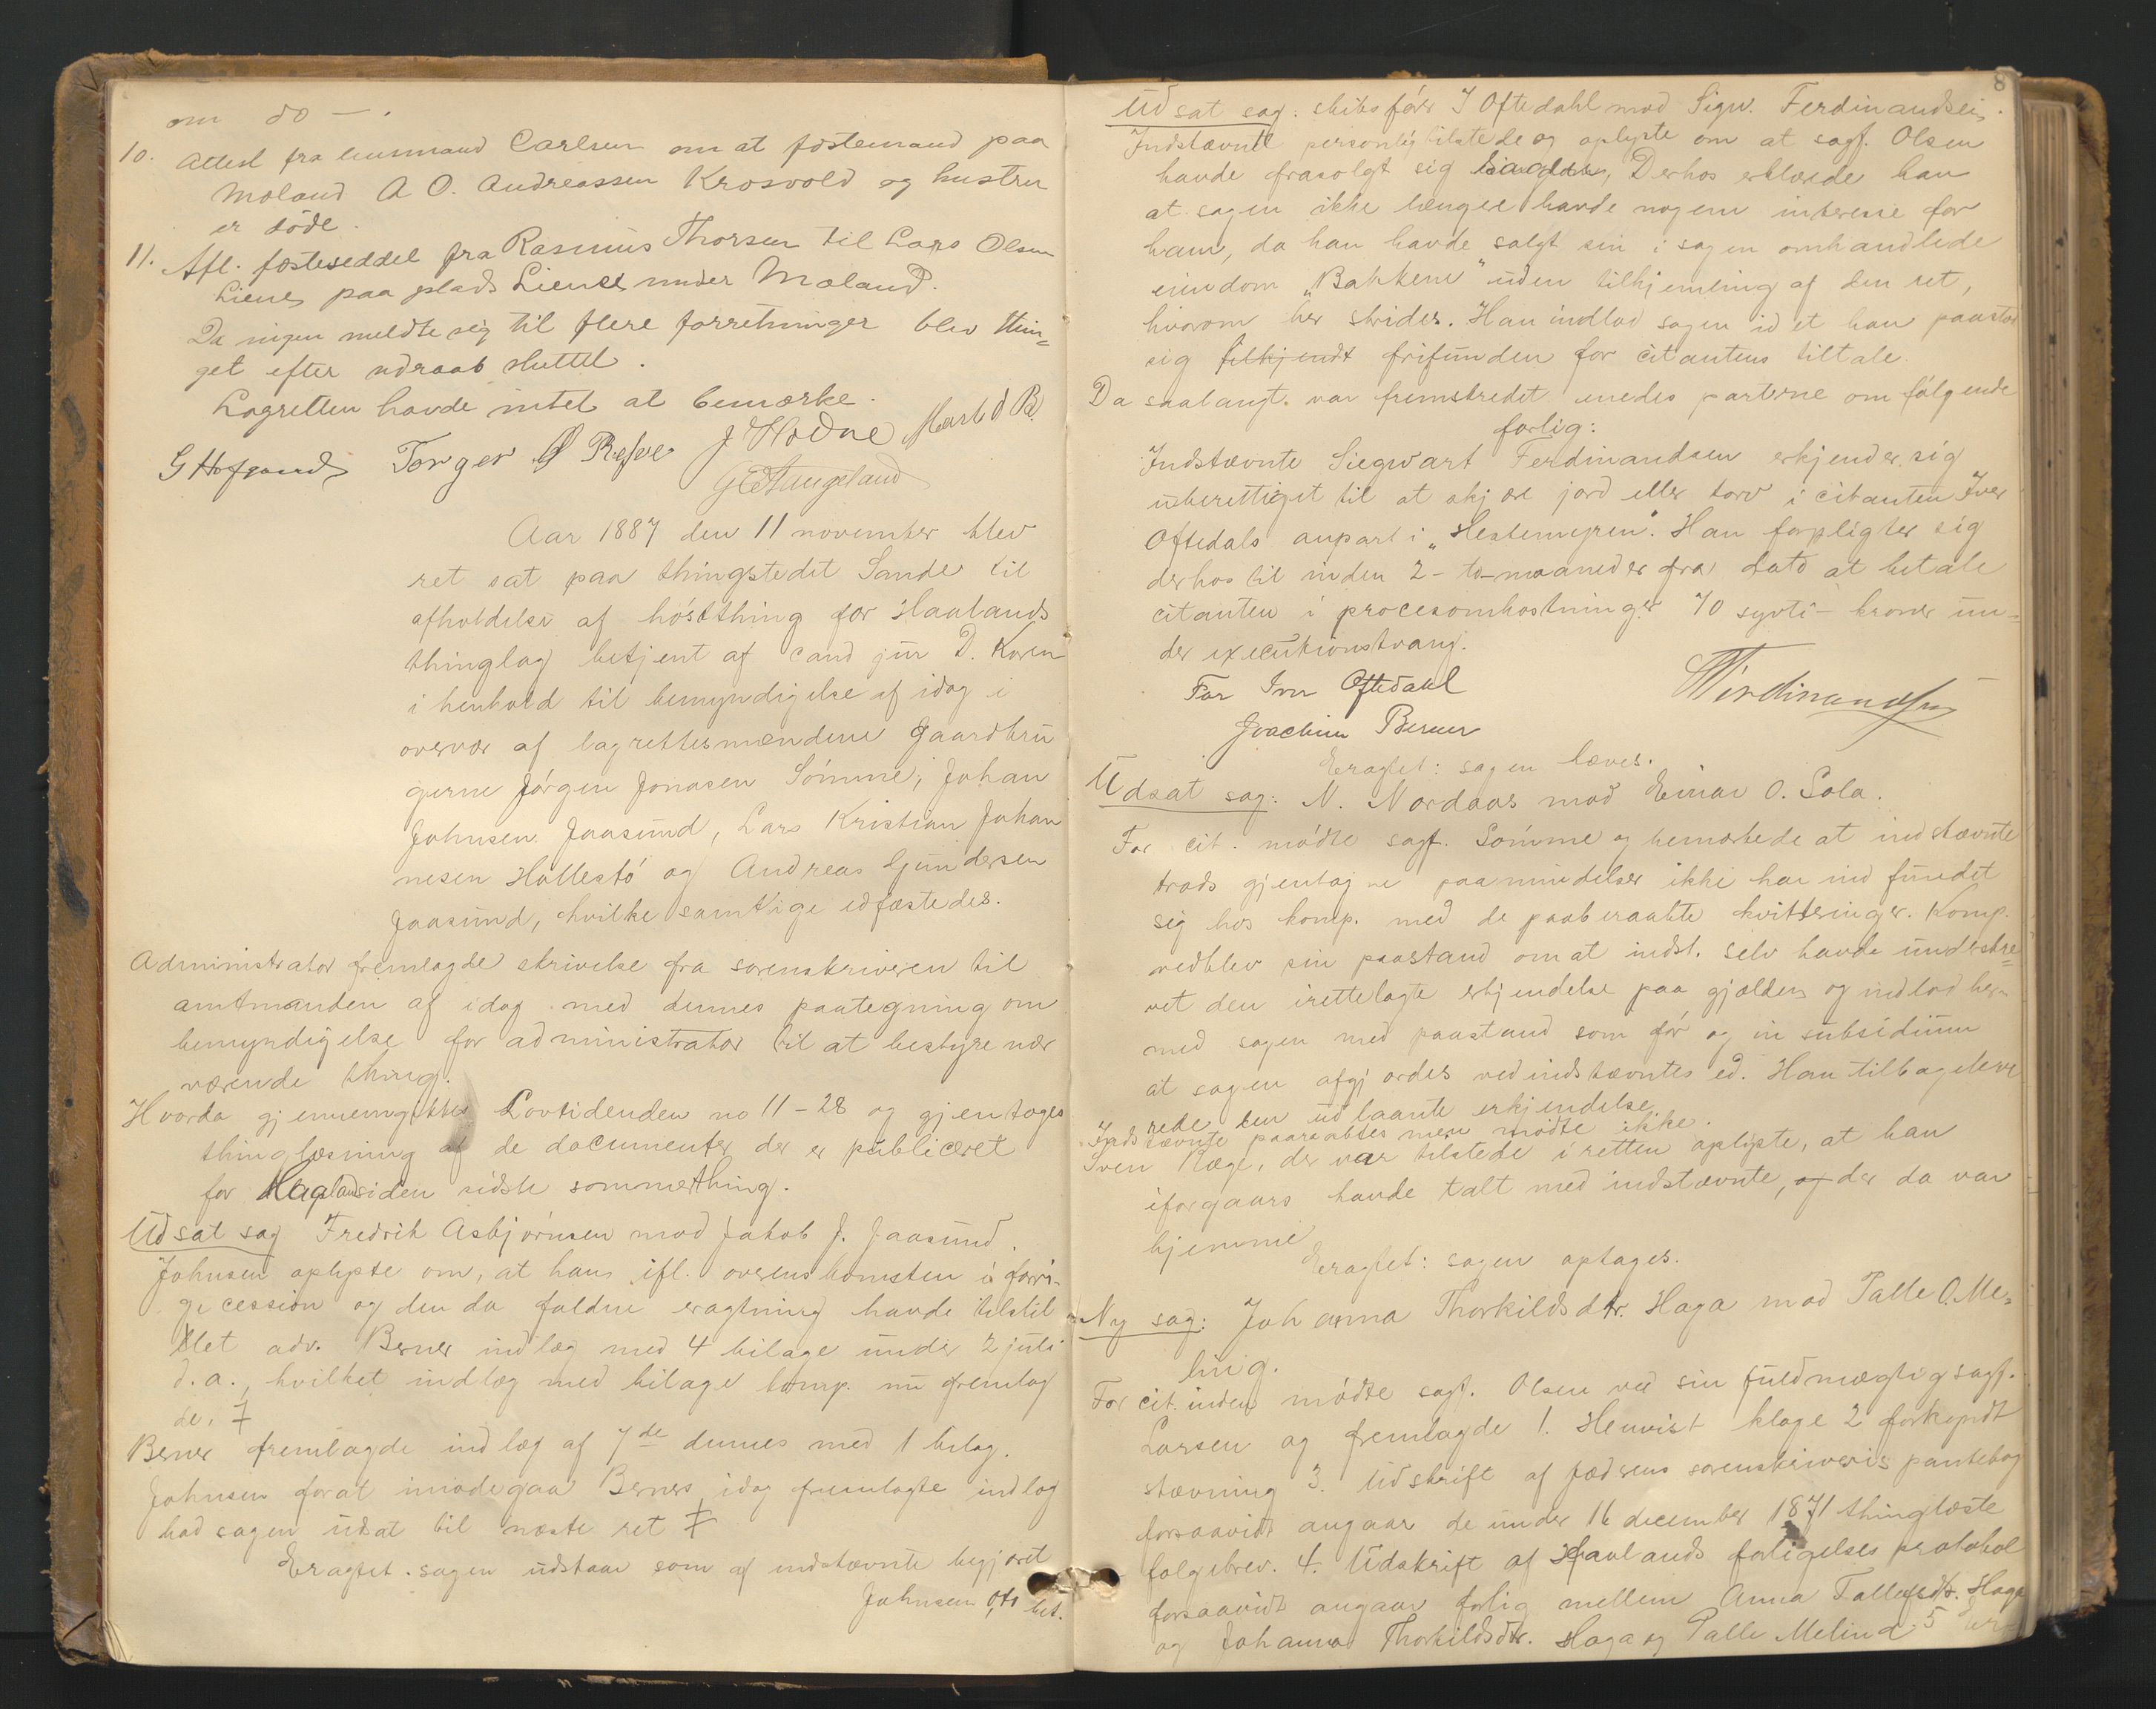 om do — .
10. Attest fra lensmand Carlsen om at föstemand paa
Moland A O. Andreassen Krosvold og hustru
er döde.
11. Afl. fæsteseddel fra Rasmus Thorsen til Lars Olsen
Liene paa plads Liene under Moland.
Da ingen meldte sig til flere forretninger blev thin=
get efter udraab sluttet.
Lagretten havde intet at bemærke.
Torger Ø Refve J Hodne
G E Haugeland
Aar 1887 den 11 november blev
ret sat paa thingstedet Sande til
afholdelse af höstthing for Haalands
thinglag betjent af cand jur D. Koren
i henhold til bemyndigelse af idag i
overvær af lagrettesmændene Gaardbru
gerne Jörgen Jonasen Sömme, Johan
Johnsen Jaasund, Lars Kristian Johan
nesen Hallestö og Andreas Gundersen
Jaasund, hvilke samtlige edfæstedes.
Administrator fremlagde skrivelse fra sorenskriveren til
amtmanden af idag med dennes paategning om
bemyndigelse for administrator til at bestyre nær
værende thing.
Hvorda gjennemgikkes Lovtidenden no 11-28 og gjentoges
thinglæsning af de documenter der er publiceret
for Haaland siden sidste sommerthing.
Udsat sag Fredrik Asbjörnsen mod Jakob J. Jaasund.
Johnsen oplyste om, at han ifl. overenskomsten i forri-
ge cession og den da faldne eragtning havde tilstil
let adv. Berner indlæg med 4 bilage under 2 juli
d. a., hvilket indlæg med bilage komp. nu fremlag
de.
Berner fremlagde indlæg af 7de dennes med 1 bilag.
Johnsen forat imödegaa Berners idag fremlagte indlæg
bad sagen udsat til næste ret
Eragtet. sagen udstaar som af indstævnte begjæret
Johnsen 0,40 bet.
8
Udsat sag: skibsförer I Oftedahl mod Sigw. Ferdinandsen.
Indstævnte personlig tilstede og oplyste om at sagf. Olsen
havde frasolgt sig sagen, Derhos erklærede han
at sagen ikke længer havde nogen interesse for
ham, da han havde solgt sin i sagen omhandlede
eiendom „Bakkene" uden tilhjemling af den ret,
hvorom her strides. Han indlod sagen idet han paastod
sig tilkjendt frifunden for citantens tiltale.
Da saalangt var fremskredet enedes parterne om fölgende
forlig:
Indstævnte Siegwart Ferdinandsen erkjender sig
uberettiget til at skjære jord eller torv i citanten Iver
Oftedals anpart i „Hestemyren". Han forpligter sig
derhos til inden 2-to-maaneder fra dato at betale
citanten i procesomkostninger 70 sytti- kroner un=
der executionstvang.
For Iver Oftedahl
Joachim Berner
Ferdinandsen
Eragtet: sagen hæves.
Udsat sag: N. Nordaas mod Einar O. Sola.
For cit. mödte sagf. Sömme og bemærkede at indstævnte
trods gjentagne paamindelser ikke har indfundet
sig hos komp. med de paaberaabte kvitteringer. Komp.
vedblev sin paastand om at indst. selv havde underskre=
vet den irettelagte erkjendelse paa gjælden og indlod her-
med sagen med paastand som för og in subsidium
at sagen afgjordes ved indstævntes ed. Han tilbageleve
rede den udlaante erkjendelse.
Indstævnte paaraabtes men mödte ikke.
Sven Ræge, der var tilstede i retten oplyste, at han
iforgaars havde talt med indstævnte, og der da var
hjemme
Eragtet: sagen optages.
Ny sag: Johanna Thorkildsdtr. Haga mod Palle O. Me=
ling.
For cit. inden mödte sagf. Olsen ved sin fuldmægtig sagf.
Larsen og fremlagde 1. Henvist klage 2 forkyndt
stævning 3. Udskrift af Jæderens sorenskriveris pantebog
forsaavidt angaar de under 16 december 1871 thinglæste
fölgebrev. 4. Udskrift af Haalands forligelses protokol
forsaavidt angaar forlig mellem Anna Tallefsdtr. Haga
og Johanna Thorkildsdtr. Haga og Palle Meling. 5